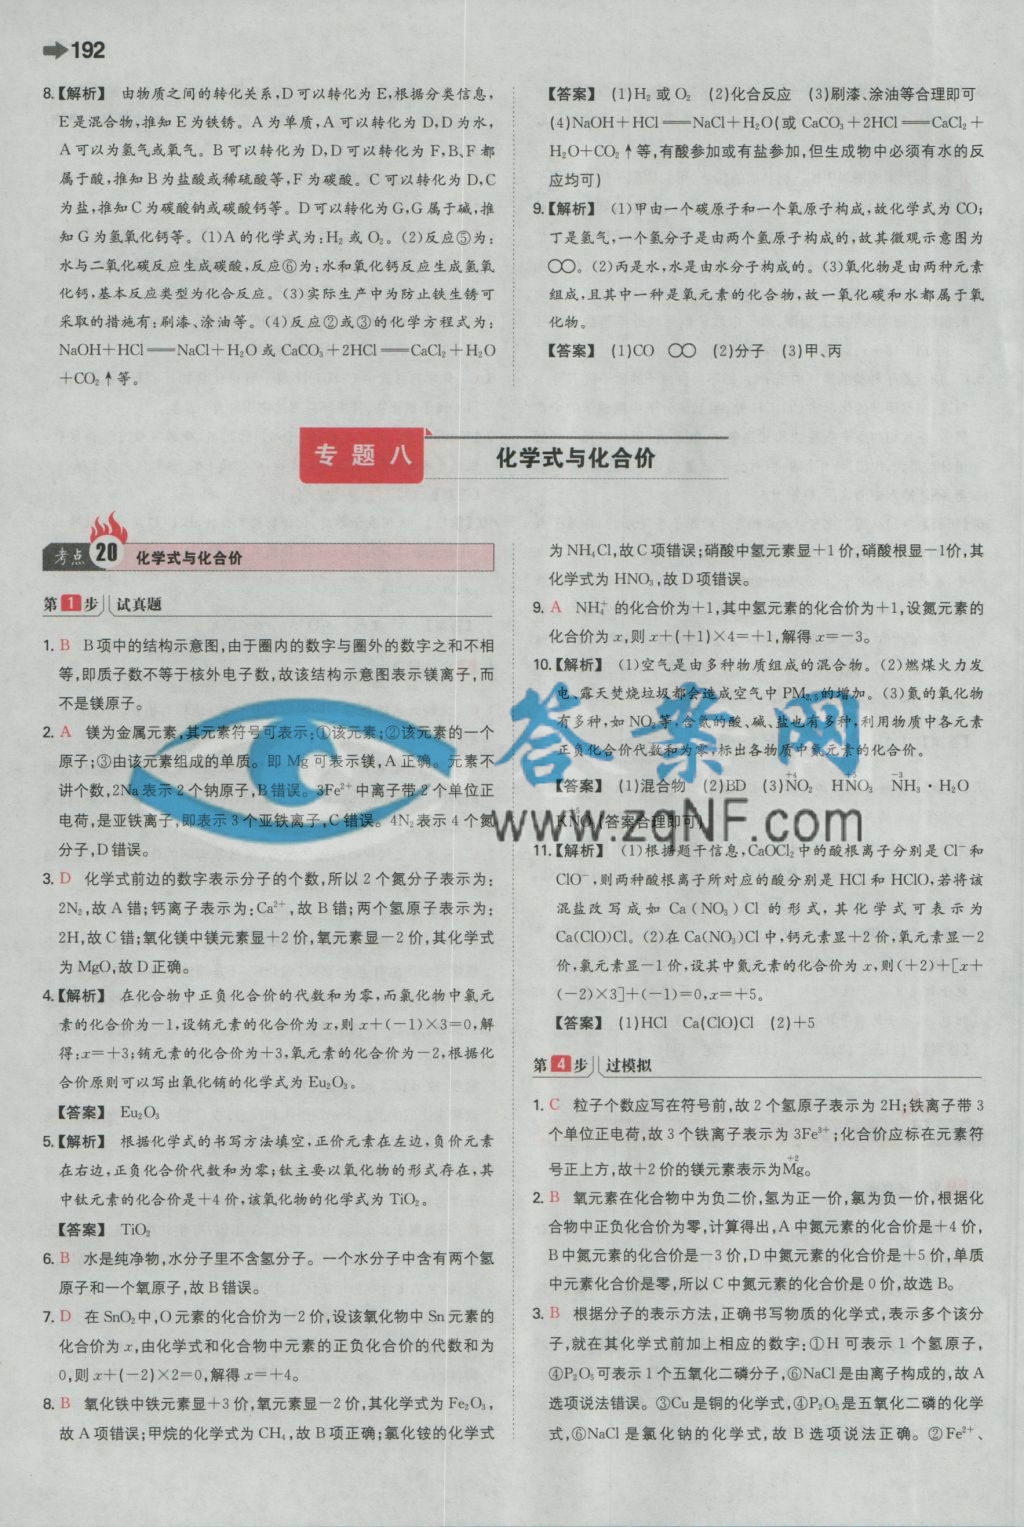 192
8.【解析】 由物质之间的转化关系,D可以转化为E,根据分类信息,
E是混合物,推知E为铁锈。A为单质,A可以转化为D,D为水,
A可以为氢气或氧气。B可以转化为D,D可以转化为F,B、F都
属于酸,推知B为盐酸或稀硫酸等,F为碳酸。C可以转化为D,C
为盐,推知C为碳酸钠或碳酸钙等。D可以转化为G,G属于碱,推
知G为氢氧化钙等。(1)A的化学式为:H₂或O₂。(2)反应⑤为:
水与二氧化碳反应生成碳酸,反应⑥为:水和氧化钙反应生成氢氧
化钙,基本反应类型为化合反应。(3)实际生产中为防止铁生锈可
采取的措施有:刷漆、涂油等。(4)反应②或③的化学方程式为:
NaOH+HCl══NaCl+H₂O或CaCO₃+2HCl══CaCl₂+H₂O
+CO₂↑等。
【答案】 (1)H₂或O₂ (2)化合反应 (3)刷漆、涂油等合理即可
(4)NaOH+HCl══NaCl+H₂O(或CaCO₃+2HCl══CaCl₂+
H₂O+CO₂↑等,有酸参加或有盐参加,但生成物中必须有水的反
应均可)
9.【解析】 (1)甲由一个碳原子和一个氧原子构成,故化学式为CO;
丁是氢气,一个氢分子是由两个氢原子构成的,故其微观示意图为
○○。(2)丙是水,水是由水分子构成的。(3)氧化物是由两种元素
组成,且其中一种是氧元素的化合物,故一氧化碳和水都属于氧
化物。
【答案】 (1)CO ○○ (2)分子 (3)甲、丙
专题八 化学式与化合价
考点20 化学式与化合价
第1步 试真题
1. B B项中的结构示意图,由于圈内的数字与圈外的数字之和不相
等,即质子数不等于核外电子数,故该结构示意图表示镁离子,而
不是镁原子。
2. A 镁为金属元素,其元素符号可表示:①该元素;②该元素的一个
原子;③由该元素组成的单质。即Mg可表示镁,A正确。元素不
讲个数,2Na表示2个钠原子,B错误。3Fe²⁺中离子带2个单位正
电荷,是亚铁离子,即表示3个亚铁离子,C错误。4N₂表示4个氮
分子,D错误。
3. D 化学式前边的数字表示分子的个数,所以2个氮分子表示为:
2N₂,故A错;钙离子表示为:Ca²⁺,故B错;两个氢原子表示为:
2H,故C错;氧化镁中镁元素显+2价,氧元素显−2价,其化学式
为MgO,故D正确。
4.【解析】 在化合物中正负化合价的代数和为零,而氯化物中氯元
素的化合价为−1,设铕元素的化合价为x,则x+(−1)×3=0,解
得:x=+3;铕元素的化合价为+3,氧元素的化合价为−2,根据化
合价原则可以写出氧化铕的化学式为Eu₂O₃。
【答案】 Eu₂O₃
5.【解析】 根据化学式的书写方法填空,正价元素在左边,负价元素
在右边,正负化合价代数和为零;钛主要以氧化物的形式存在,其
中钛元素的化合价是+4价,该氧化物的化学式为TiO₂。
【答案】 TiO₂
6. B 水是纯净物,水分子里不含氢分子。一个水分子中含有两个氢
原子和一个氧原子,故B错误。
7. D 在SnO₂中,O元素的化合价为−2价,设该氧化物中Sn元素的
化合价为x,由化学式和化合物中元素的正负化合价的代数和为
0,则x+(−2)×2=0,解得x=+4。
8. B 氧化铁中铁元素显+3价,氧元素显−2价,其化学式为Fe₂O₃,
故A项错误;甲烷的化学式为CH₄,故B项正确;氯化铵的化学式
为NH₄Cl,故C项错误;硝酸中氢元素显+1价,硝酸根显−1价,其
化学式为HNO₃,故D项错误。
9. A NH₄⁺的化合价为+1,其中氢元素的化合价为+1,设氮元素的
化合价为x,则x+(+1)×4=+1,解得x=−3。
10.【解析】 (1)空气是由多种物质组成的混合物。(2)燃煤火力发
电、露天焚烧垃圾都会造成空气中PM₂.₅的增加。(3)氮的氧化物
有多种,如NO₂等,含氮的酸、碱、盐也有多种,利用物质中各元素
正负化合价代数和为零,标出各物质中氮元素的化合价。
【答案】 (1)混合物 (2)BD (3)N⁺⁴O₂ HN⁺⁵O₃ N⁻³H₃·H₂O
KN⁺⁵O₃(答案合理即可)
11.【解析】 (1)根据题干信息,CaOCl₂中的酸根离子分别是Cl⁻和
ClO⁻,则两种酸根离子所对应的酸分别是HCl和HClO,若将该
混盐改写成如Ca(NO₃)Cl的形式,其化学式可表示为
Ca(ClO)Cl。(2)在Ca(NO₃)Cl中,钙元素显+2价,氧元素显−2
价,氯元素显−1价,设其中氮元素的化合价为x,则(+2)+[x+
(−2)×3]+(−1)=0,x=+5。
【答案】 (1)HCl Ca(ClO)Cl (2)+5
第4步 过模拟
1. C 粒子个数应写在符号前,故2个氢原子表示为2H;铁离子带3
个单位正电荷,故3个铁离子表示为3Fe³⁺;化合价应标在元素符
号正上方,故+2价的镁元素表示为M⁺²g。
2. B 氧元素在化合物中为负二价,氢为正一价,氯为负一价,根据化
合物中正负化合价为零,计算得出,A中氮元素的化合价是+4价,
B中氮元素的化合价是−3价,D中氮元素的化合价是+5价,单质
中元素化合价是零,所以C中氮元素的化合价是0价,故选B。
3. B 根据分子的表示方法,正确书写物质的化学式,表示多个该分
子,就在其化学式前加上相应的数字:①H可表示1个氢原子,
④P₂O₅可表示1个五氧化二磷分子,⑥NaCl是由离子构成的,故A
选项说法错误。③Cu是铜的化学式,④P₂O₅是五氧化二磷的化学
式,⑥NaCl是氯化钠的化学式,故B选项说法正确。②Fe²⁺、
答案网
www.zqNF.com